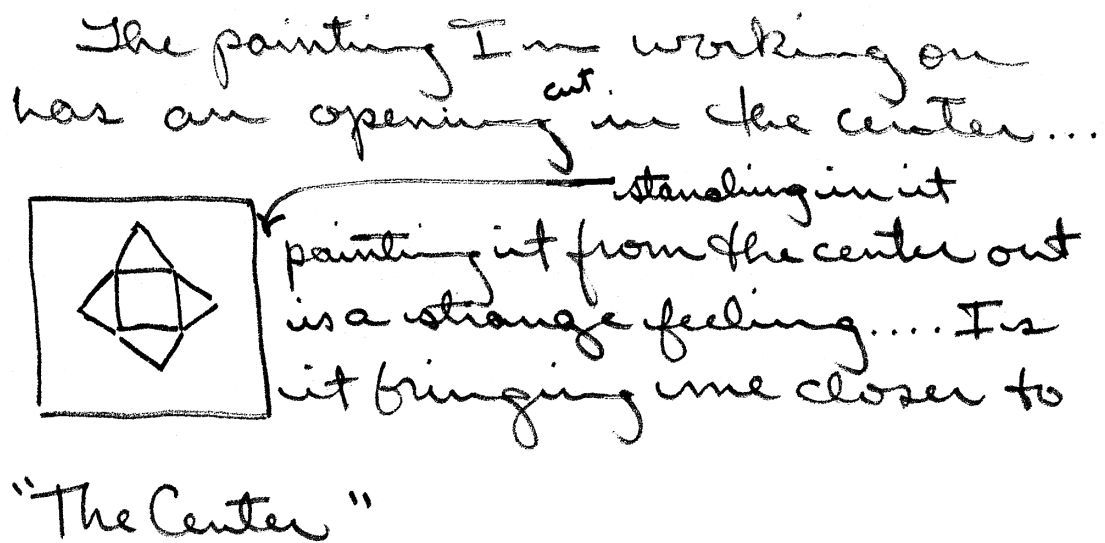 The painting I'm working on
cut.
has an opening in the center...
standing in it
painting it from the center out
is a strange feeling.... Is
it bringing me closer to
"The Center"